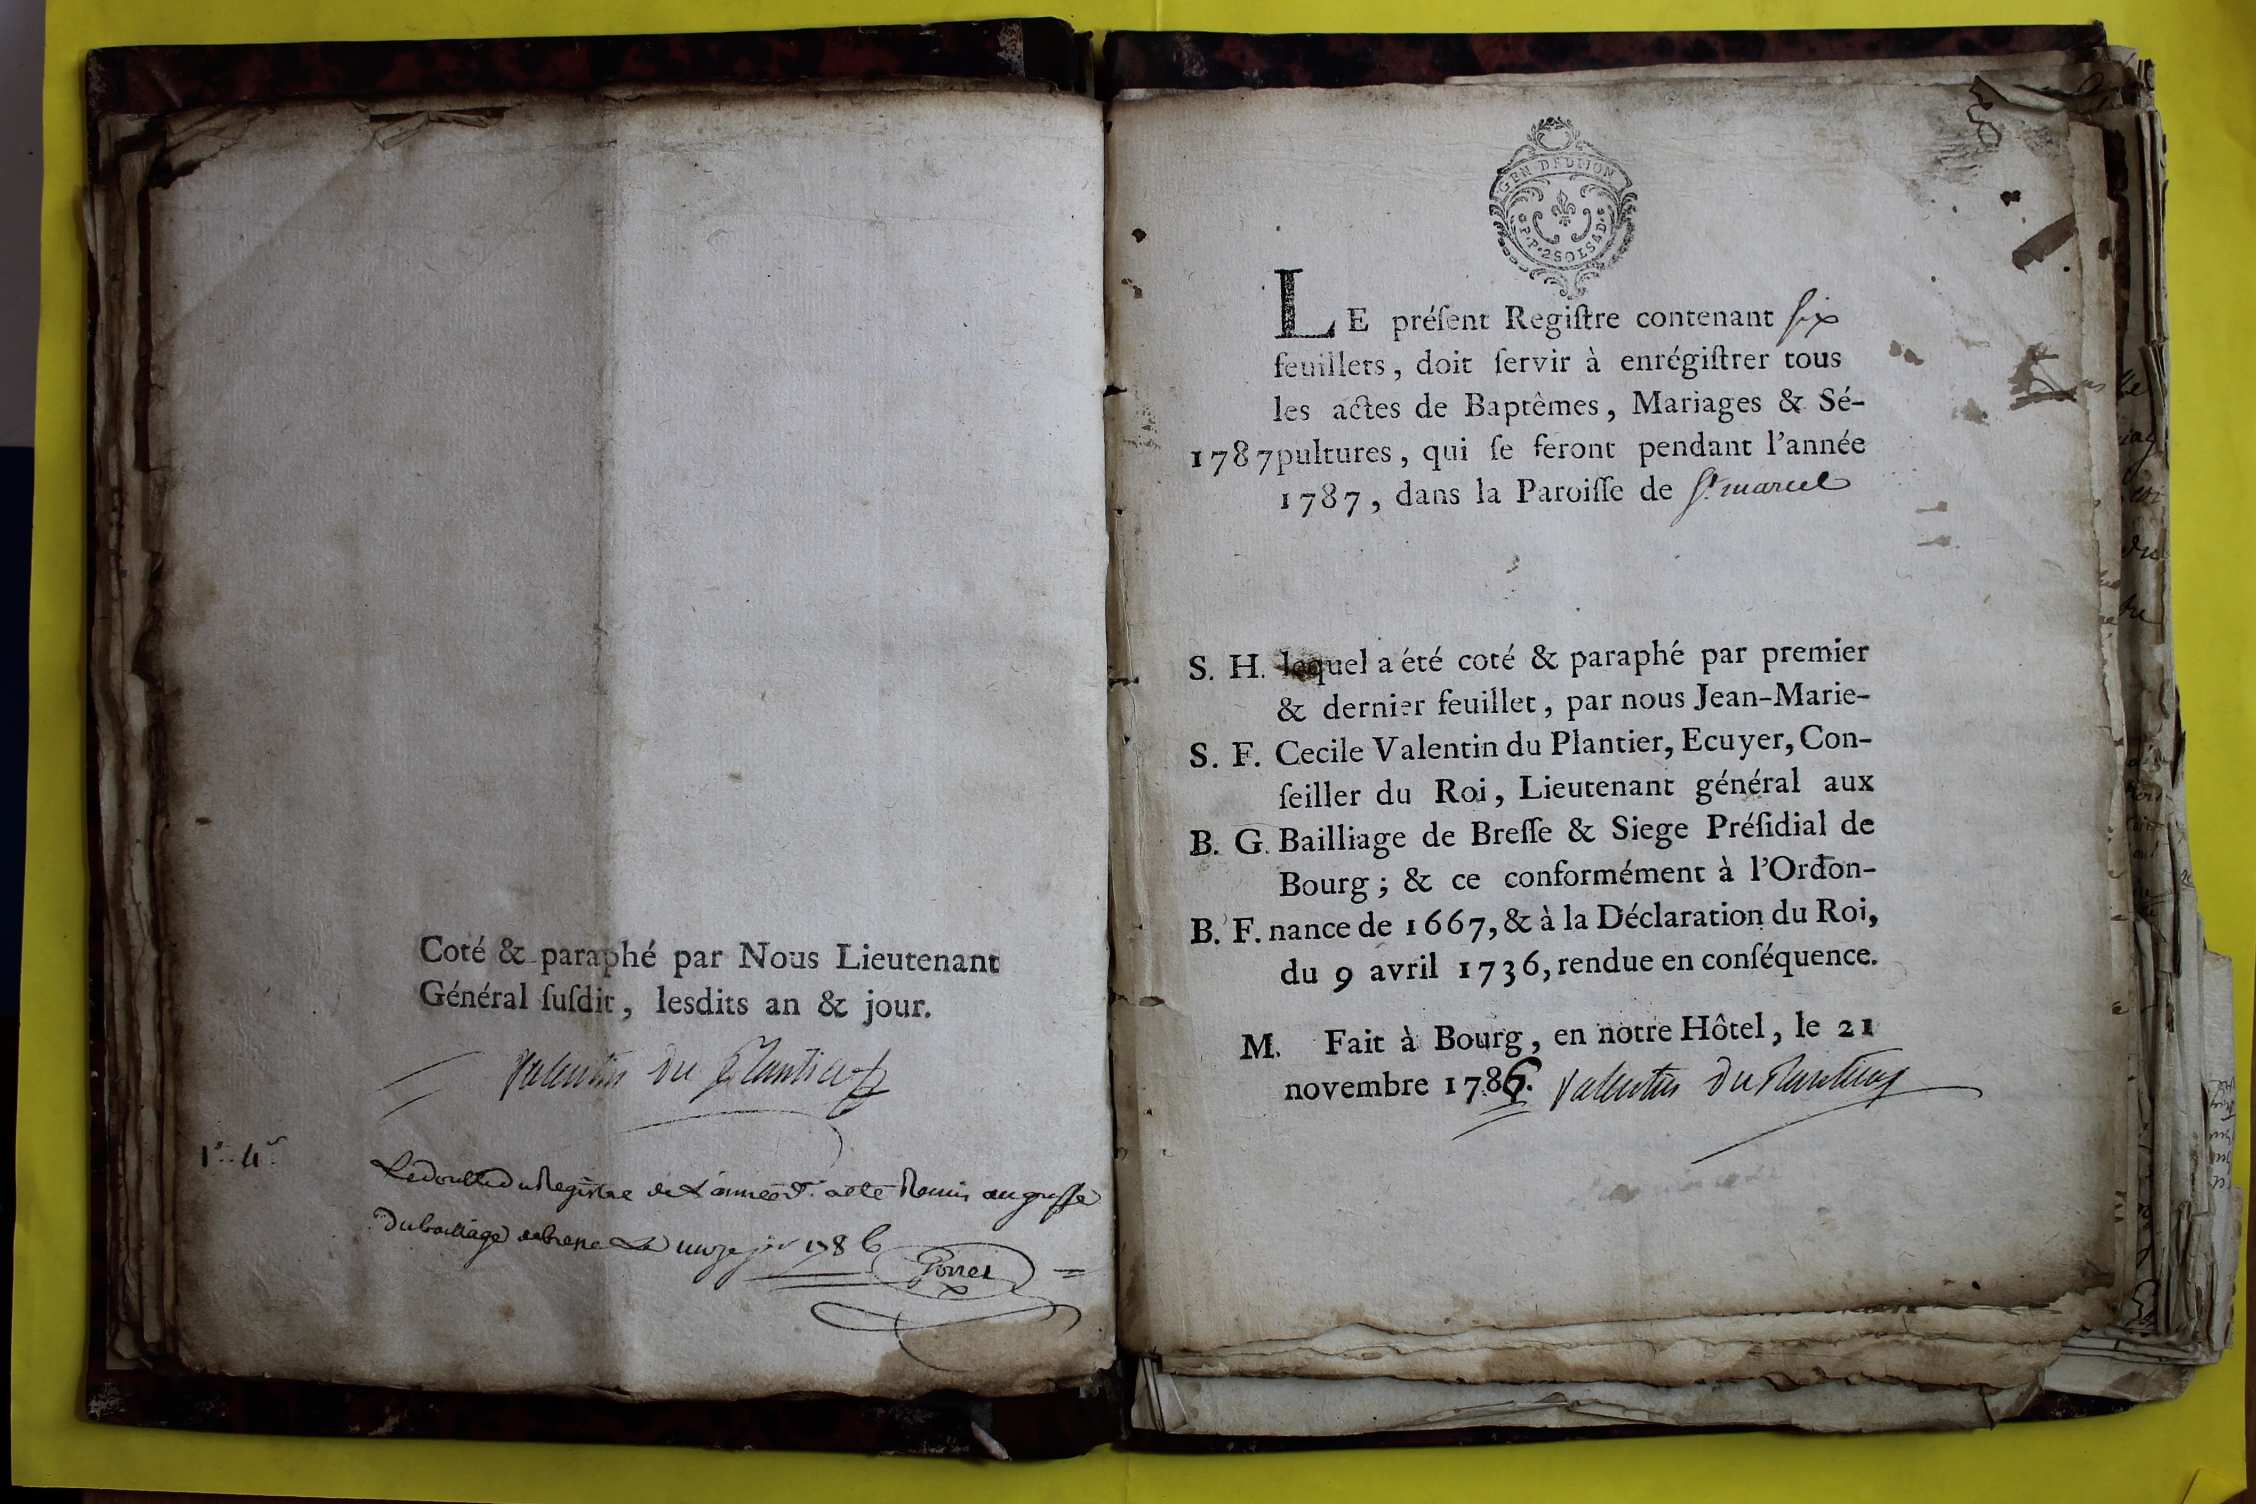 Coté & paraphé par Nous Lieutenant
Général ſuſdit, lesdits an & jour.
Valentin du Plantier
1s.. 4d.
Le double du Registre de L'année dt. a été Remis au greffe
du bailliage de bresse Le unze jer 1786
GEN DE DIJON
P.P. 2 SOLS 8 D.
LE préſent Regiſtre contenant ſix
feuillets, doit ſervir à enrégiſtrer tous
les actes de Baptêmes, Mariages & Sé-
1787 pultures, qui ſe feront pendant l'année
1787, dans la Paroiſſe de St. marcel
S. H. lequel a été coté & paraphé par premier
& dernier feuillet, par nous Jean-Marie-
S. F. Cecile Valentin du Plantier, Ecuyer, Con-
ſeiller du Roi, Lieutenant général aux
B. G. Bailliage de Breſſe & Siege Préſidial de
Bourg; & ce conformément à l'Ordon-
B. F. nance de 1667, & à la Déclaration du Roi,
du 9 avril 1736, rendue en conſéquence.
M. Fait à Bourg, en notre Hôtel, le 21
novembre 1786. Valentin du Plantier